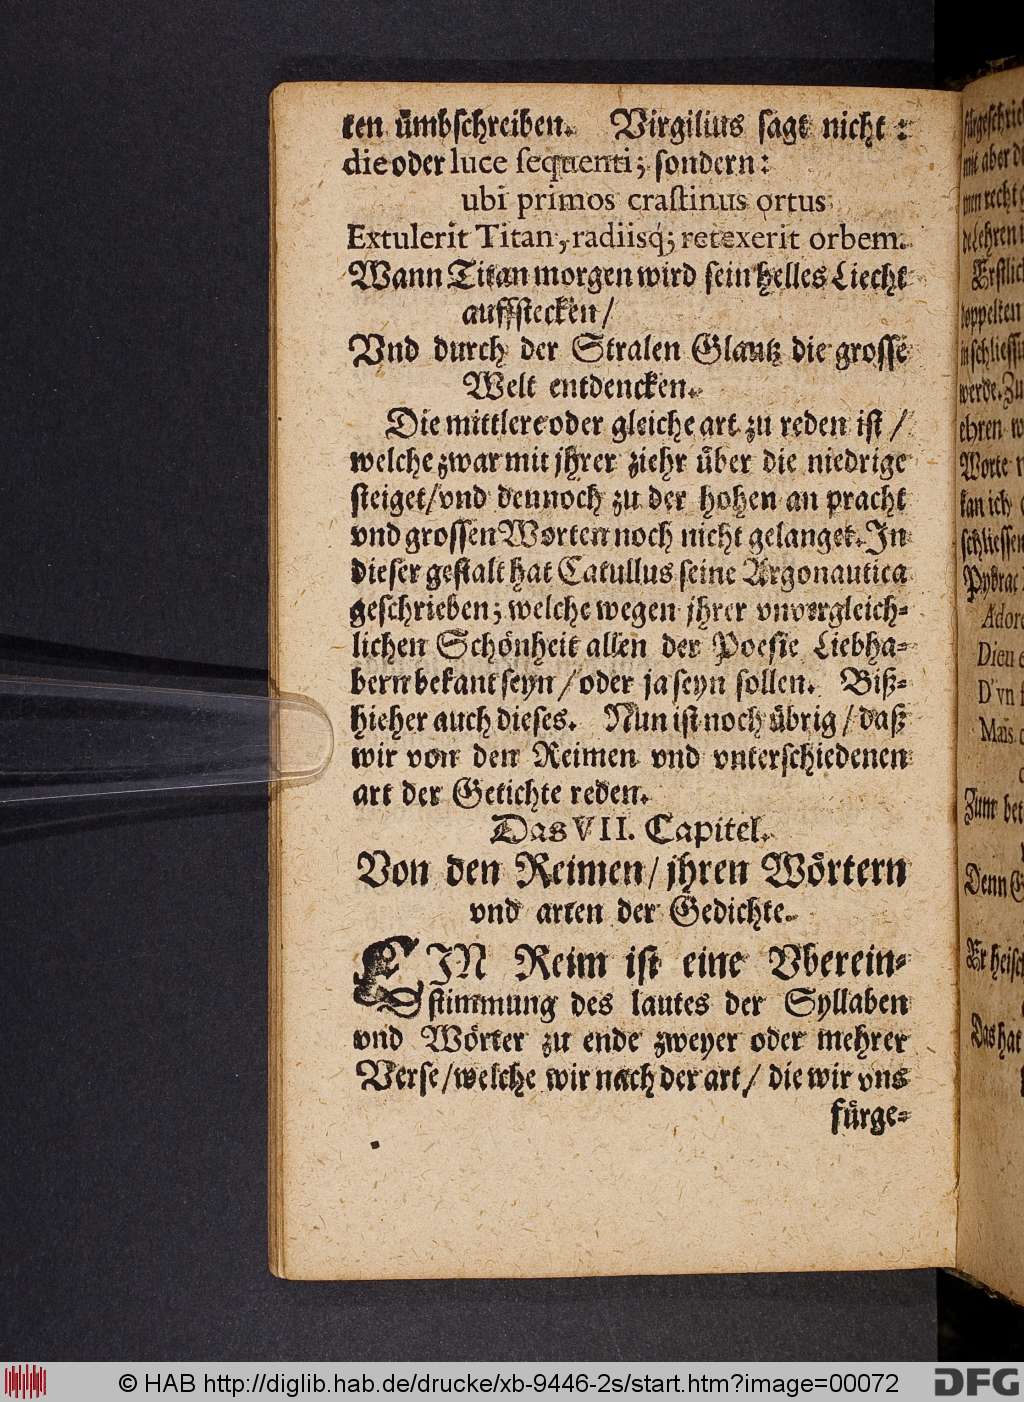 ten ümbschreiben. Virgilius sagt nicht :
die oder luce sequenti; sondern:
ubi primos crastinus ortus
Extulerit Titan, radiisq; retexerit orbem.
Wann Titan morgen wird sein helles Liecht
auffstecken/
Vnd durch der Stralen Glantz die grosse
Welt entdencken.
Die mittlere oder gleiche art zu reden ist /
welche zwar mit jhrer ziehr über die niedrige
steiget/vnd dennoch zu der hohen an pracht
vnd grossen Worten noch nicht gelanget. In
dieser gestalt hat Catullus seine Argonautica
geschrieben; welche wegen jhrer vnvergleich-
lichen Schönheit allen der Poesie Liebha-
bern bekant seyn / oder ja seyn sollen. Biß-
hieher auch dieses. Nun ist noch übrig / daß
wir von den Reimen vnd vnterschiedenen
art der Getichte reden.
Das VII. Capitel.
Von den Reimen / jhren Wörtern
vnd arten der Gedichte.
EIN Reim ist eine Vberein-
stimmung des lautes der Syllaben
vnd Wörter zu ende zweyer oder mehrer
Verse/welche wir nach der art/ die wir vns
fürge-
fürgeschrie
mit aber d
men recht
de Lehren
Erstlich
doppelten
in schliessu
werde. Zu
ehren w
Worte
kan ich
schliessen
Pybrac
Ador
Dieu
D'vn
Mais
Zum bet
Denn
Er heisch
Das hat
© HAB http://diglib.hab.de/drucke/xb-9446-2s/start.htm?image=00072
DFG